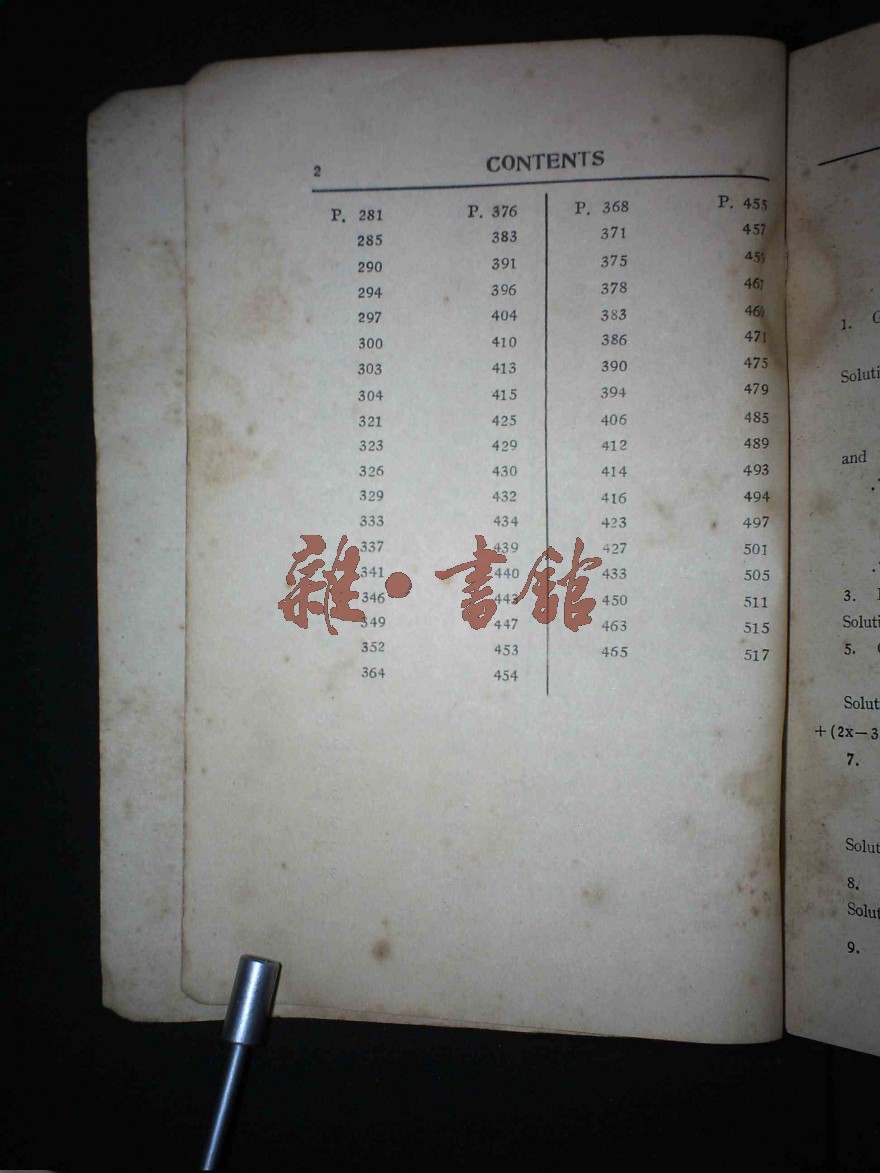 2 CONTENTS
P. 281 P. 376 P. 368 P. 455
285 383 371 457
290 391 375
294 396 378
297 404 383
300 410 386 471
303 413 390 475
304 415 394 479
321 425 406 485
323 429 412 489
326 430 414 493
329 432 416 494
333 434 423 497
337 439 427 501
341 440 433 505
346 443 450 511
349 447 463 515
352 453 465 517
364 454
雜·書館
1.
Soluti
and
3.
Soluti
5.
Solut
+(2x—3
7.
Solut
8.
Solut
9.